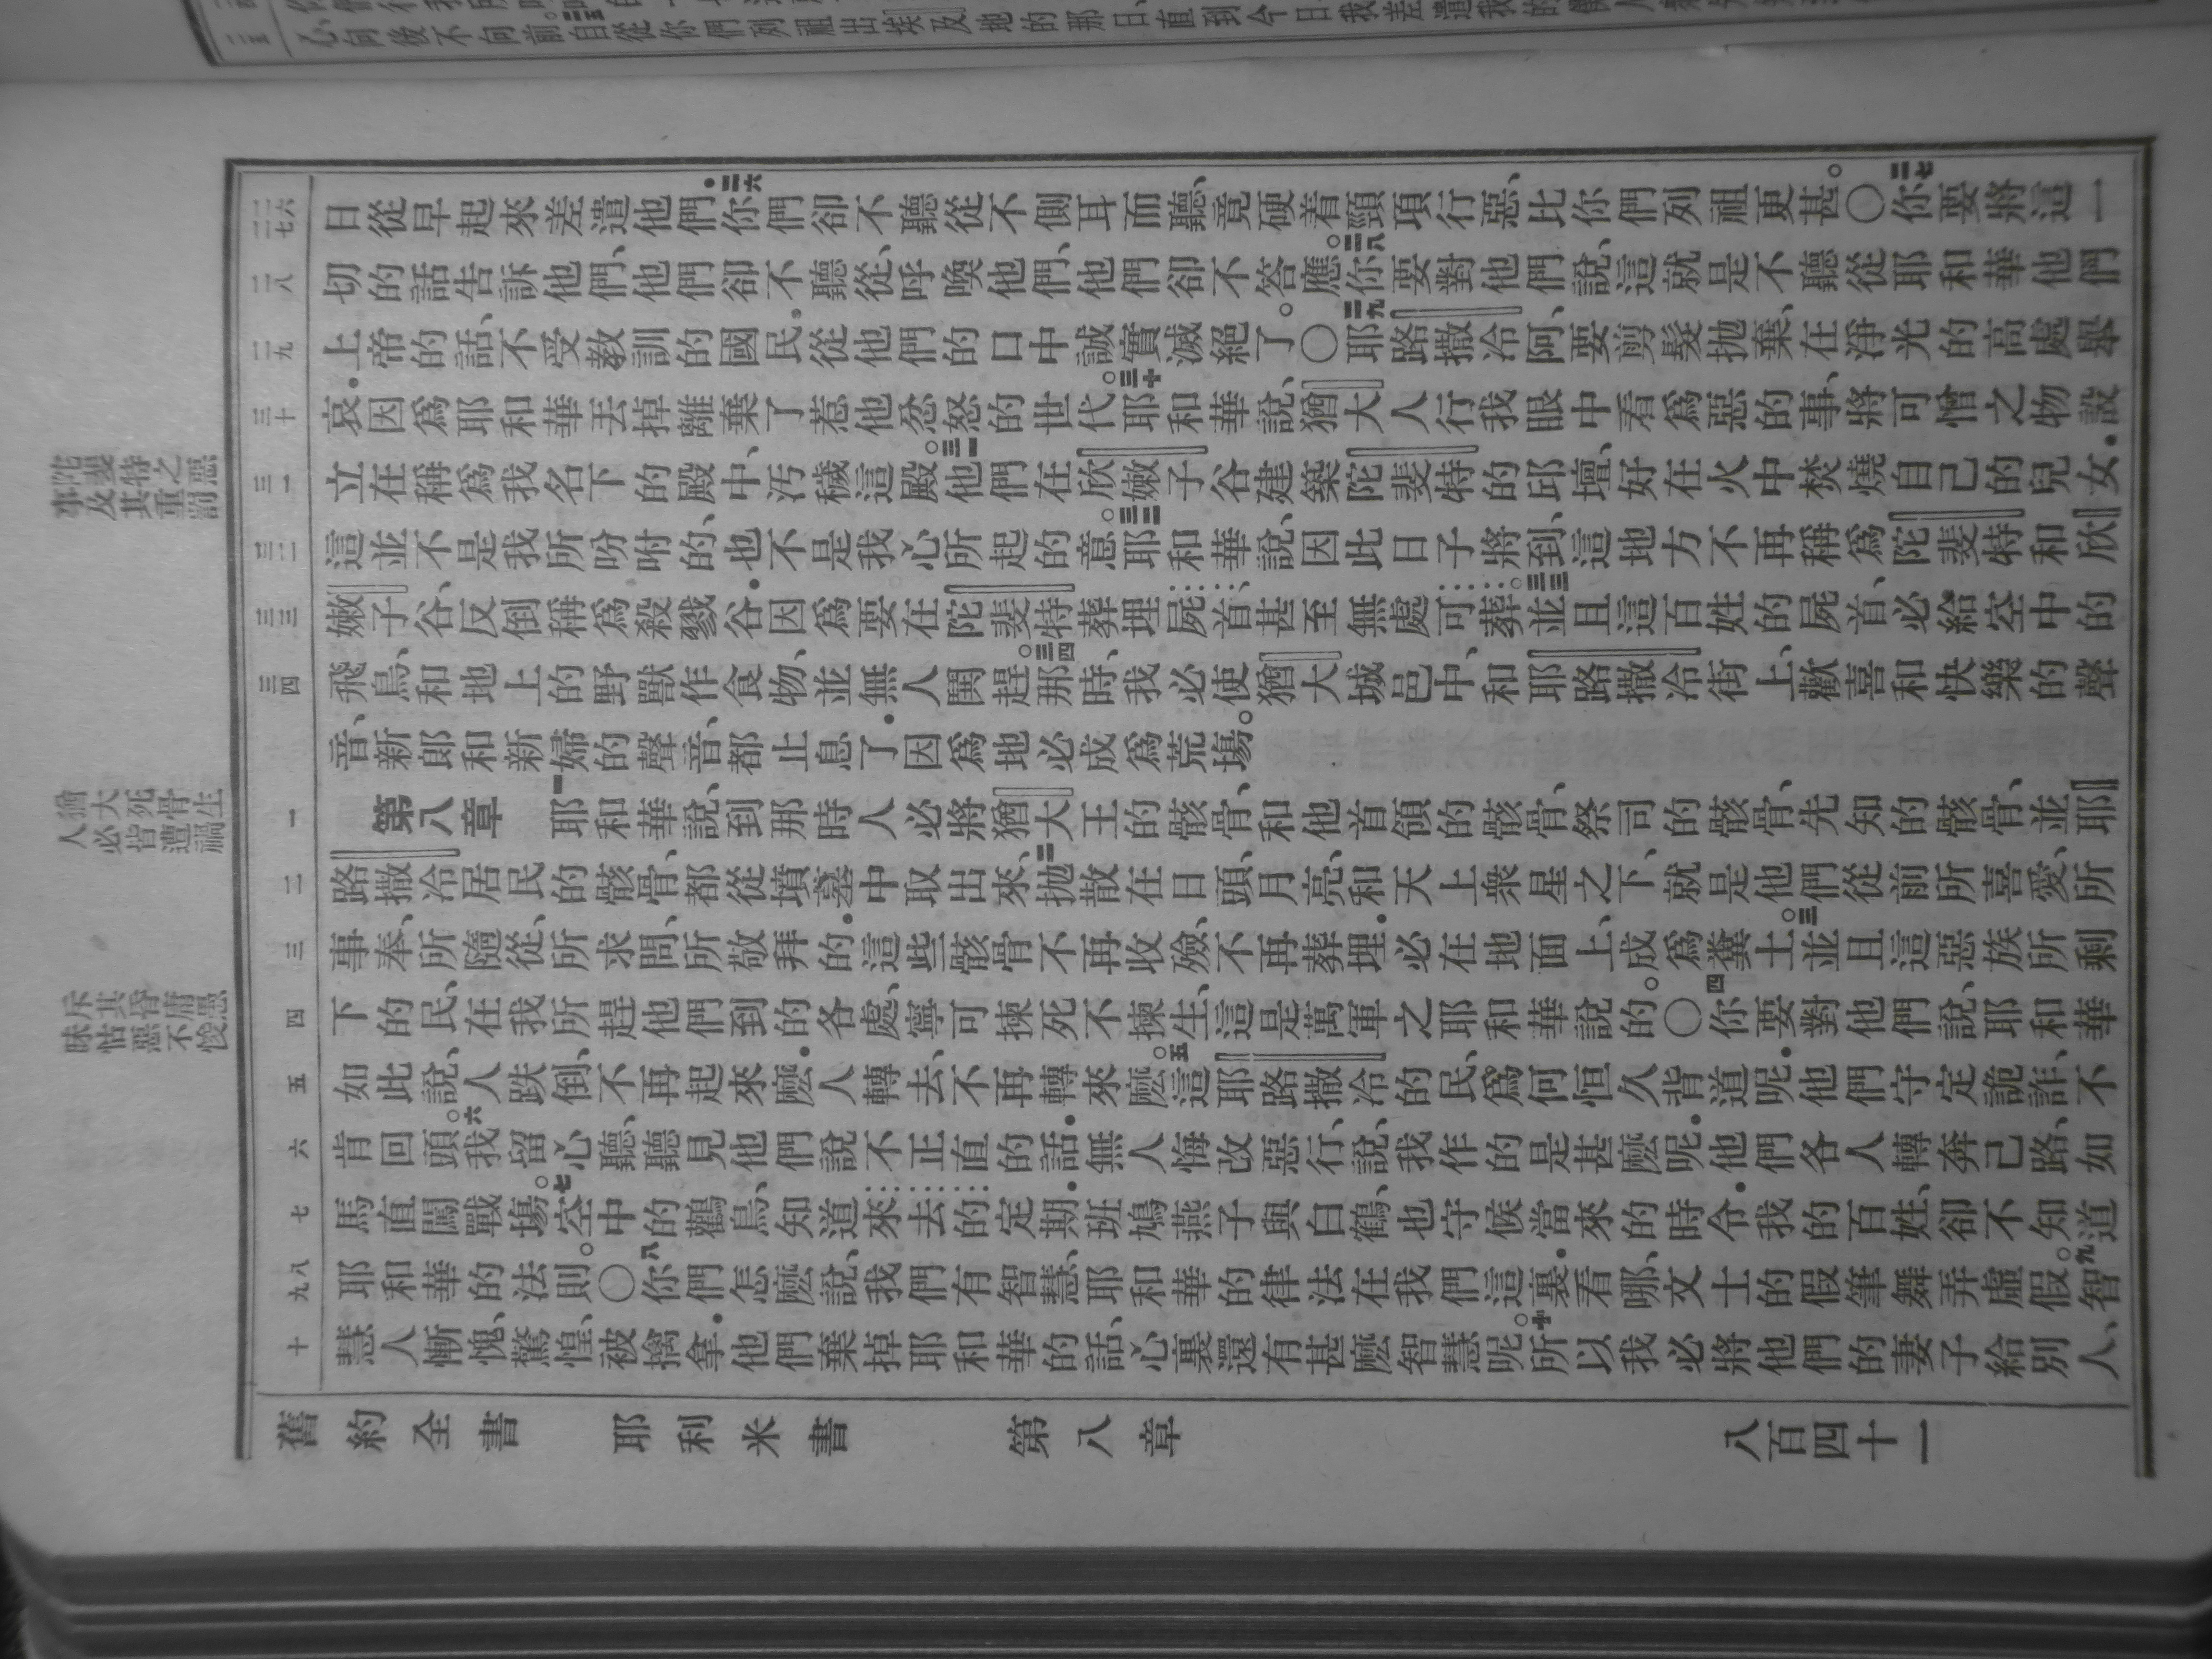 日從早起來差遣他們．二六你們卻不聽從不側耳而聽、竟硬着頸項行惡、比你們列祖更甚。〇二七你要將這一
切的話告訴他們、他們卻不聽從、呼喚他們、他們卻不答應。二八你要對他們說、這就是不聽從耶和華他們
上帝的話、不受教訓的國民、從他們的口中誠實滅絕了。〇二九耶路撒冷阿、要剪髮拋棄、在淨光的高處舉
哀．因爲耶和華丟掉離棄了惹他忿怒的世代。三十耶和華說、猶大人行我眼中看爲惡的事、將可憎之物設
立在稱爲我名下的殿中、汚穢這殿。三一他們在欣嫩子谷建築陀斐特的邱壇、好在火中焚燒自己的兒女．
這並不是我所吩咐的、也不是我心所起的意。三二耶和華說、因此日子將到、這地方不再稱爲陀斐特和欣
嫩子谷、反倒稱爲殺戮谷．因爲要在陀斐特葬埋屍首、甚至無處可葬。三三並且這百姓的屍首、必給空中的
飛鳥、和地上的野獸作食物、並無人鬨趕。三四那時、我必使猶大城邑中、和耶路撒冷街上、歡喜和快樂的聲
音、新郎和新婦的聲音、都止息了．因爲地必成爲荒塲。
第八章　一耶和華說、到那時人必將猶大王的骸骨、和他首領的骸骨、祭司的骸骨、先知的骸骨、並耶
路撒冷居民的骸骨、都從墳墓中取出來、二拋散在日頭、月亮、和天上衆星之下、就是他們從前所喜愛、所
事奉、所隨從、所求問、所敬拜的．這些骸骨不再收殮、不再葬埋．必在地面上、成爲糞土。三並且這惡族所剩
下的民、在我所趕他們到的各處、寧可揀死不揀生、這是萬軍之耶和華說的。〇四你要對他們說、耶和華
如此說、人跌倒、不再起來麽．人轉去、不再轉來麽。五這耶路撒冷的民、爲何恒久背道呢．他們守定詭詐、不
肯回頭。六我留心聽、聽見他們說不正直的話．無人悔改惡行、說、我作的是甚麽呢．他們各人轉奔己路、如
馬直闖戰塲。七空中的鸛鳥、知道來去的定期．班鳩燕子與白鶴、也守候當來的時令．我的百姓、卻不知道
耶和華的法則。〇八你們怎麽說、我們有智慧、耶和華的律法在我們這裏．看哪、文士的假筆舞弄虛假。九智
慧人慚愧、驚惶、被擒拿．他們棄掉耶和華的話、心裏還有甚麽智慧呢。十所以我必將他們的妻子給別人、
舊約全書　耶利米書　第八章　八百四十一
二六
二七
二八
二九
三十
三一
三二
三三
三四
一
二
三
四
五
六
七
八
九
十
陀斐特之惡
事及其重罰
猶大死骨生
人必皆遭禍
斥其昏庸愚
昧怙惡不悛